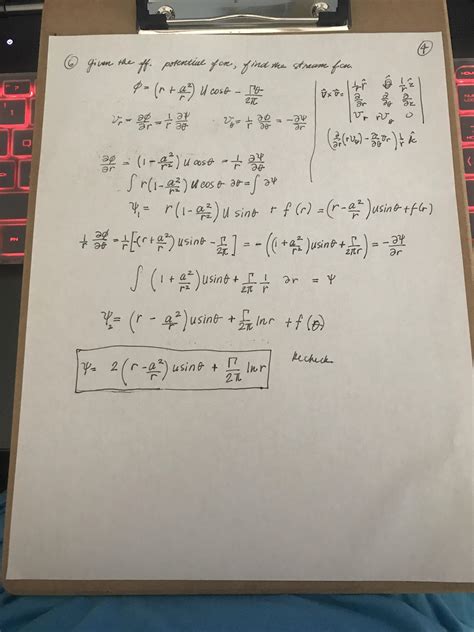 ④
⑥ given the ff. potential fcn, find the stream fcn.
ϕ = (r + a²/r) U cosθ − Γθ/2π
v_r = ∂ϕ/∂r = 1/r ∂ψ/∂θ    v_θ = 1/r ∂ϕ/∂θ = −∂ψ/∂r
∇ × v̄ = | 1/r r̂  θ̂  1/r ẑ |
| ∂/∂r  ∂/∂θ  ∂/∂z |
| v_r  r v_θ  0 |
(∂/∂r (r v_θ) − ∂/∂θ v_r) 1/r k̂
∂ϕ/∂r = (1 − a²/r²) U cosθ = 1/r ∂ψ/∂θ
∫ r(1 − a²/r²) U cosθ ∂θ = ∫ ∂ψ
ψ₁ = r(1 − a²/r²) U sinθ + f(r) = (r − a²/r) U sinθ + f(r)
1/r ∂ϕ/∂θ = 1/r [−(r + a²/r) U sinθ − Γ/2π] = −((1 + a²/r²) U sinθ + Γ/2πr) = −∂ψ/∂r
∫ (1 + a²/r²) U sinθ + Γ/2π 1/r ∂r = ψ
ψ₂ = (r − a²/r) U sinθ + Γ/2π ln r + f(θ)
ψ = 2(r − a²/r) U sinθ + Γ/2π ln r    Recheck